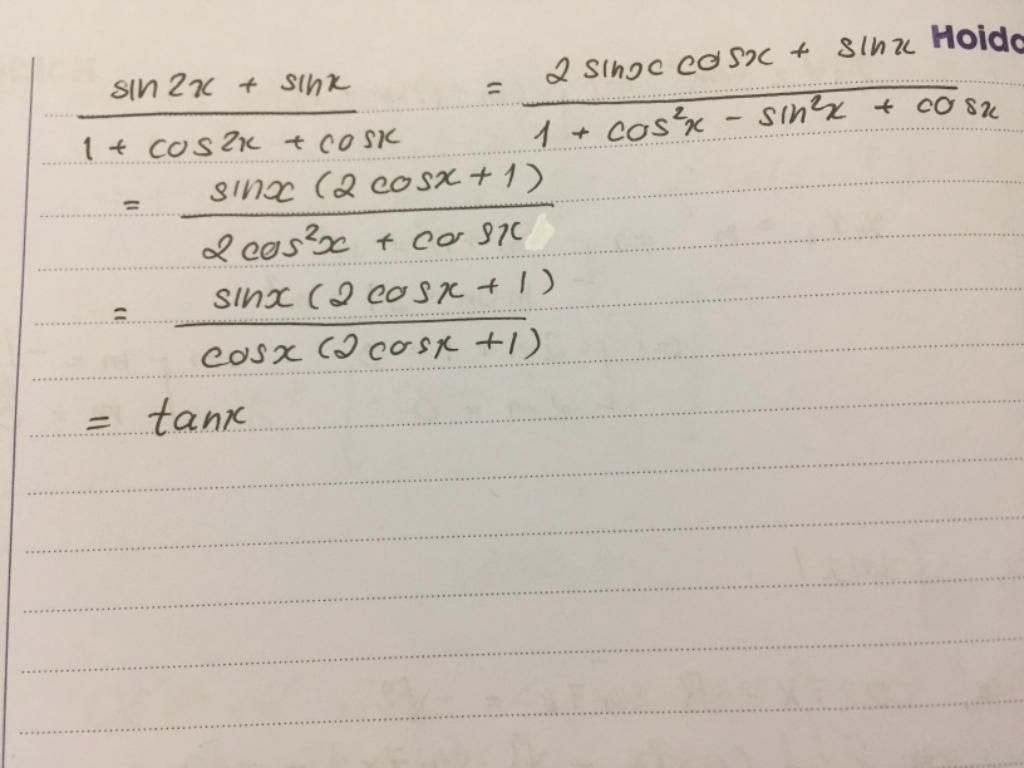 Hoido
sin 2x + sinx / 1 + cos2x + cosx = 2 sinx cosx + sinx / 1 + cos²x - sin²x + cosx
= sinx (2 cosx + 1) / 2 cos²x + cosx
= sinx (2 cosx + 1) / cosx (2 cosx + 1)
= tanx